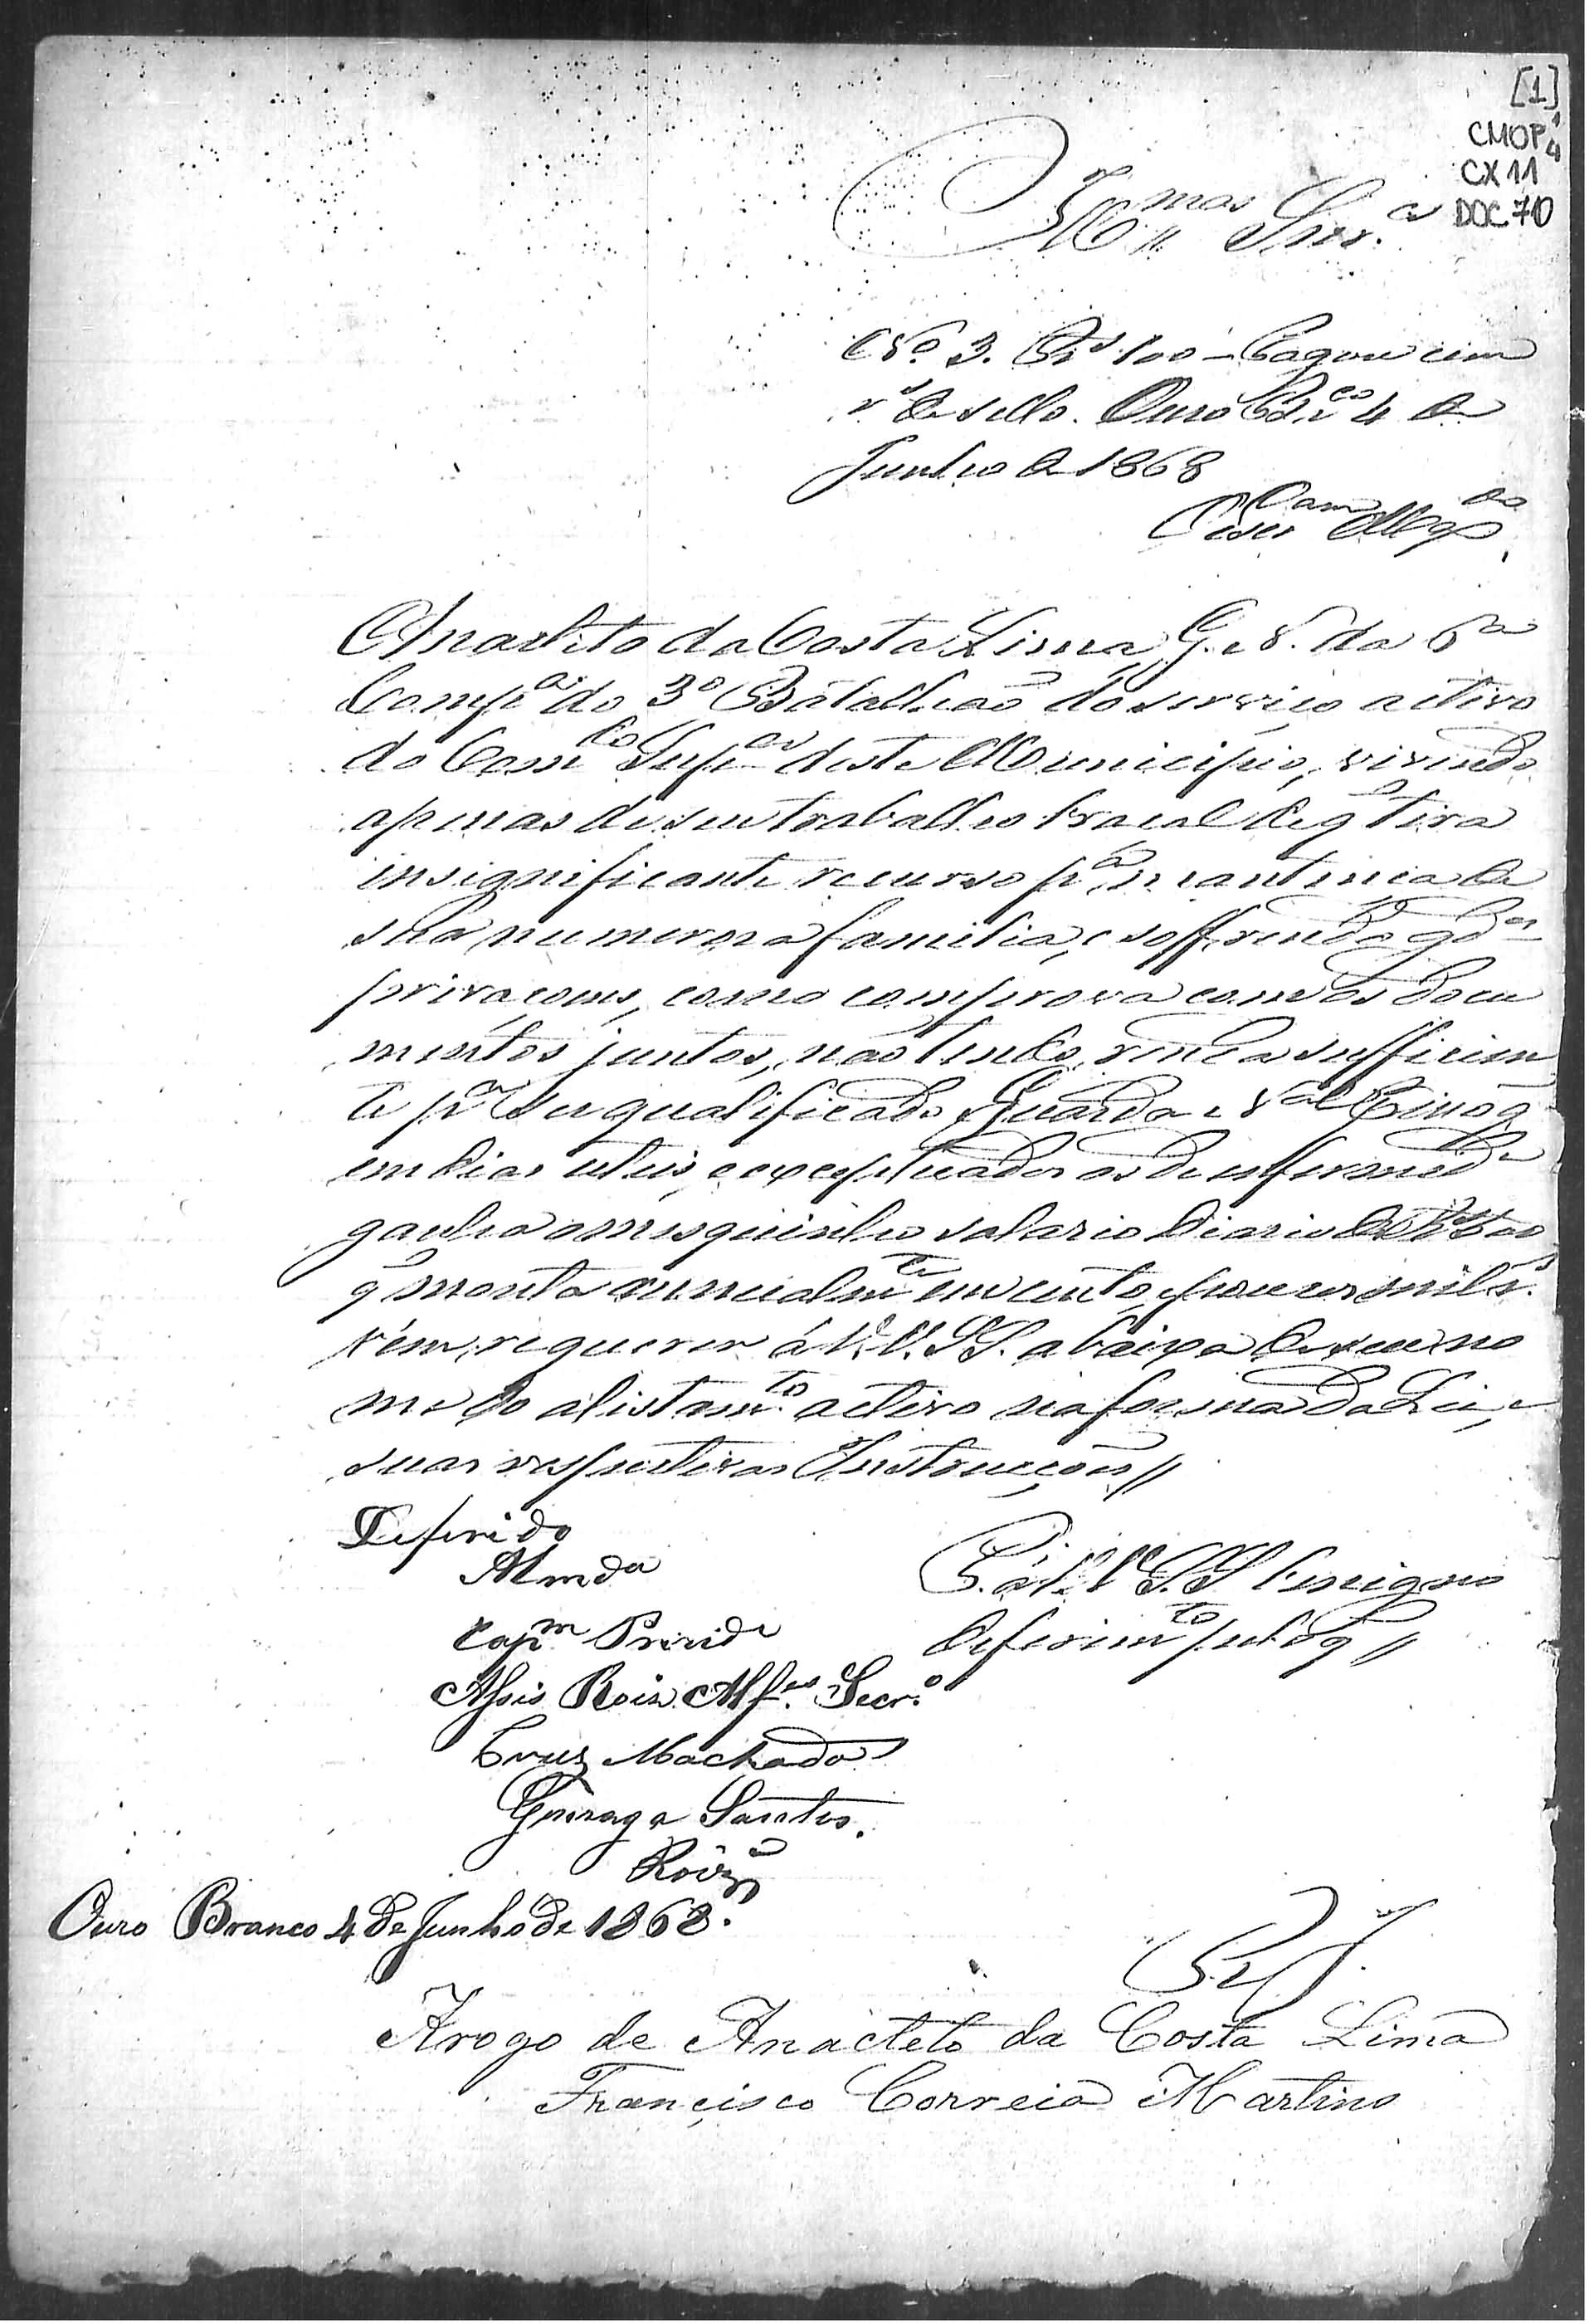 [1]
CMOP 4
CX 11
DOC 70
Ill.mos Snrs.
N.o 3. Rs 100 – Pagou cem
rs de sello. Ouro Br.co 4 de
Junho de 1868
Anacleto da Costa Lima, G. N. da 6a
Comp.a do 3o Batalhaõ do serviço activo
do Com.do Sup.or deste Municipio, vivendo
apenas de seu trabalho braçal de q̃ tira
insignificante recurso p.a mantença de
sua numerosa familia, e soffrendo gd.es
privaçoens, como comprova com os docu
mentos juntos, naõ tendo renda sufficien
te p.a ser qualificado Guarda N.al
em dias uteis, exceptuados os de enfermid.e
ganha o mesquinho salario diario de
q̃ monta annualm.te em cento e
vem requerer á V.V. S.S. a baixa de seu no
me do alistam.to activo na forma da Lei, e
suas respectivas Instrucçoens //
Deferido
Almda
P. á V.V. S.S. benigno
Capm Prezide
deferim.to pelo q̃ //
Assis Roiz Alf.es Secr.o
Cruz Machado
Gonzaga Santos.
Roiz
Ouro Branco 4 de Junho de 1868.
E. R. J.
Arogo de Anacleto da Costa Lima
Francisco Correia Martins